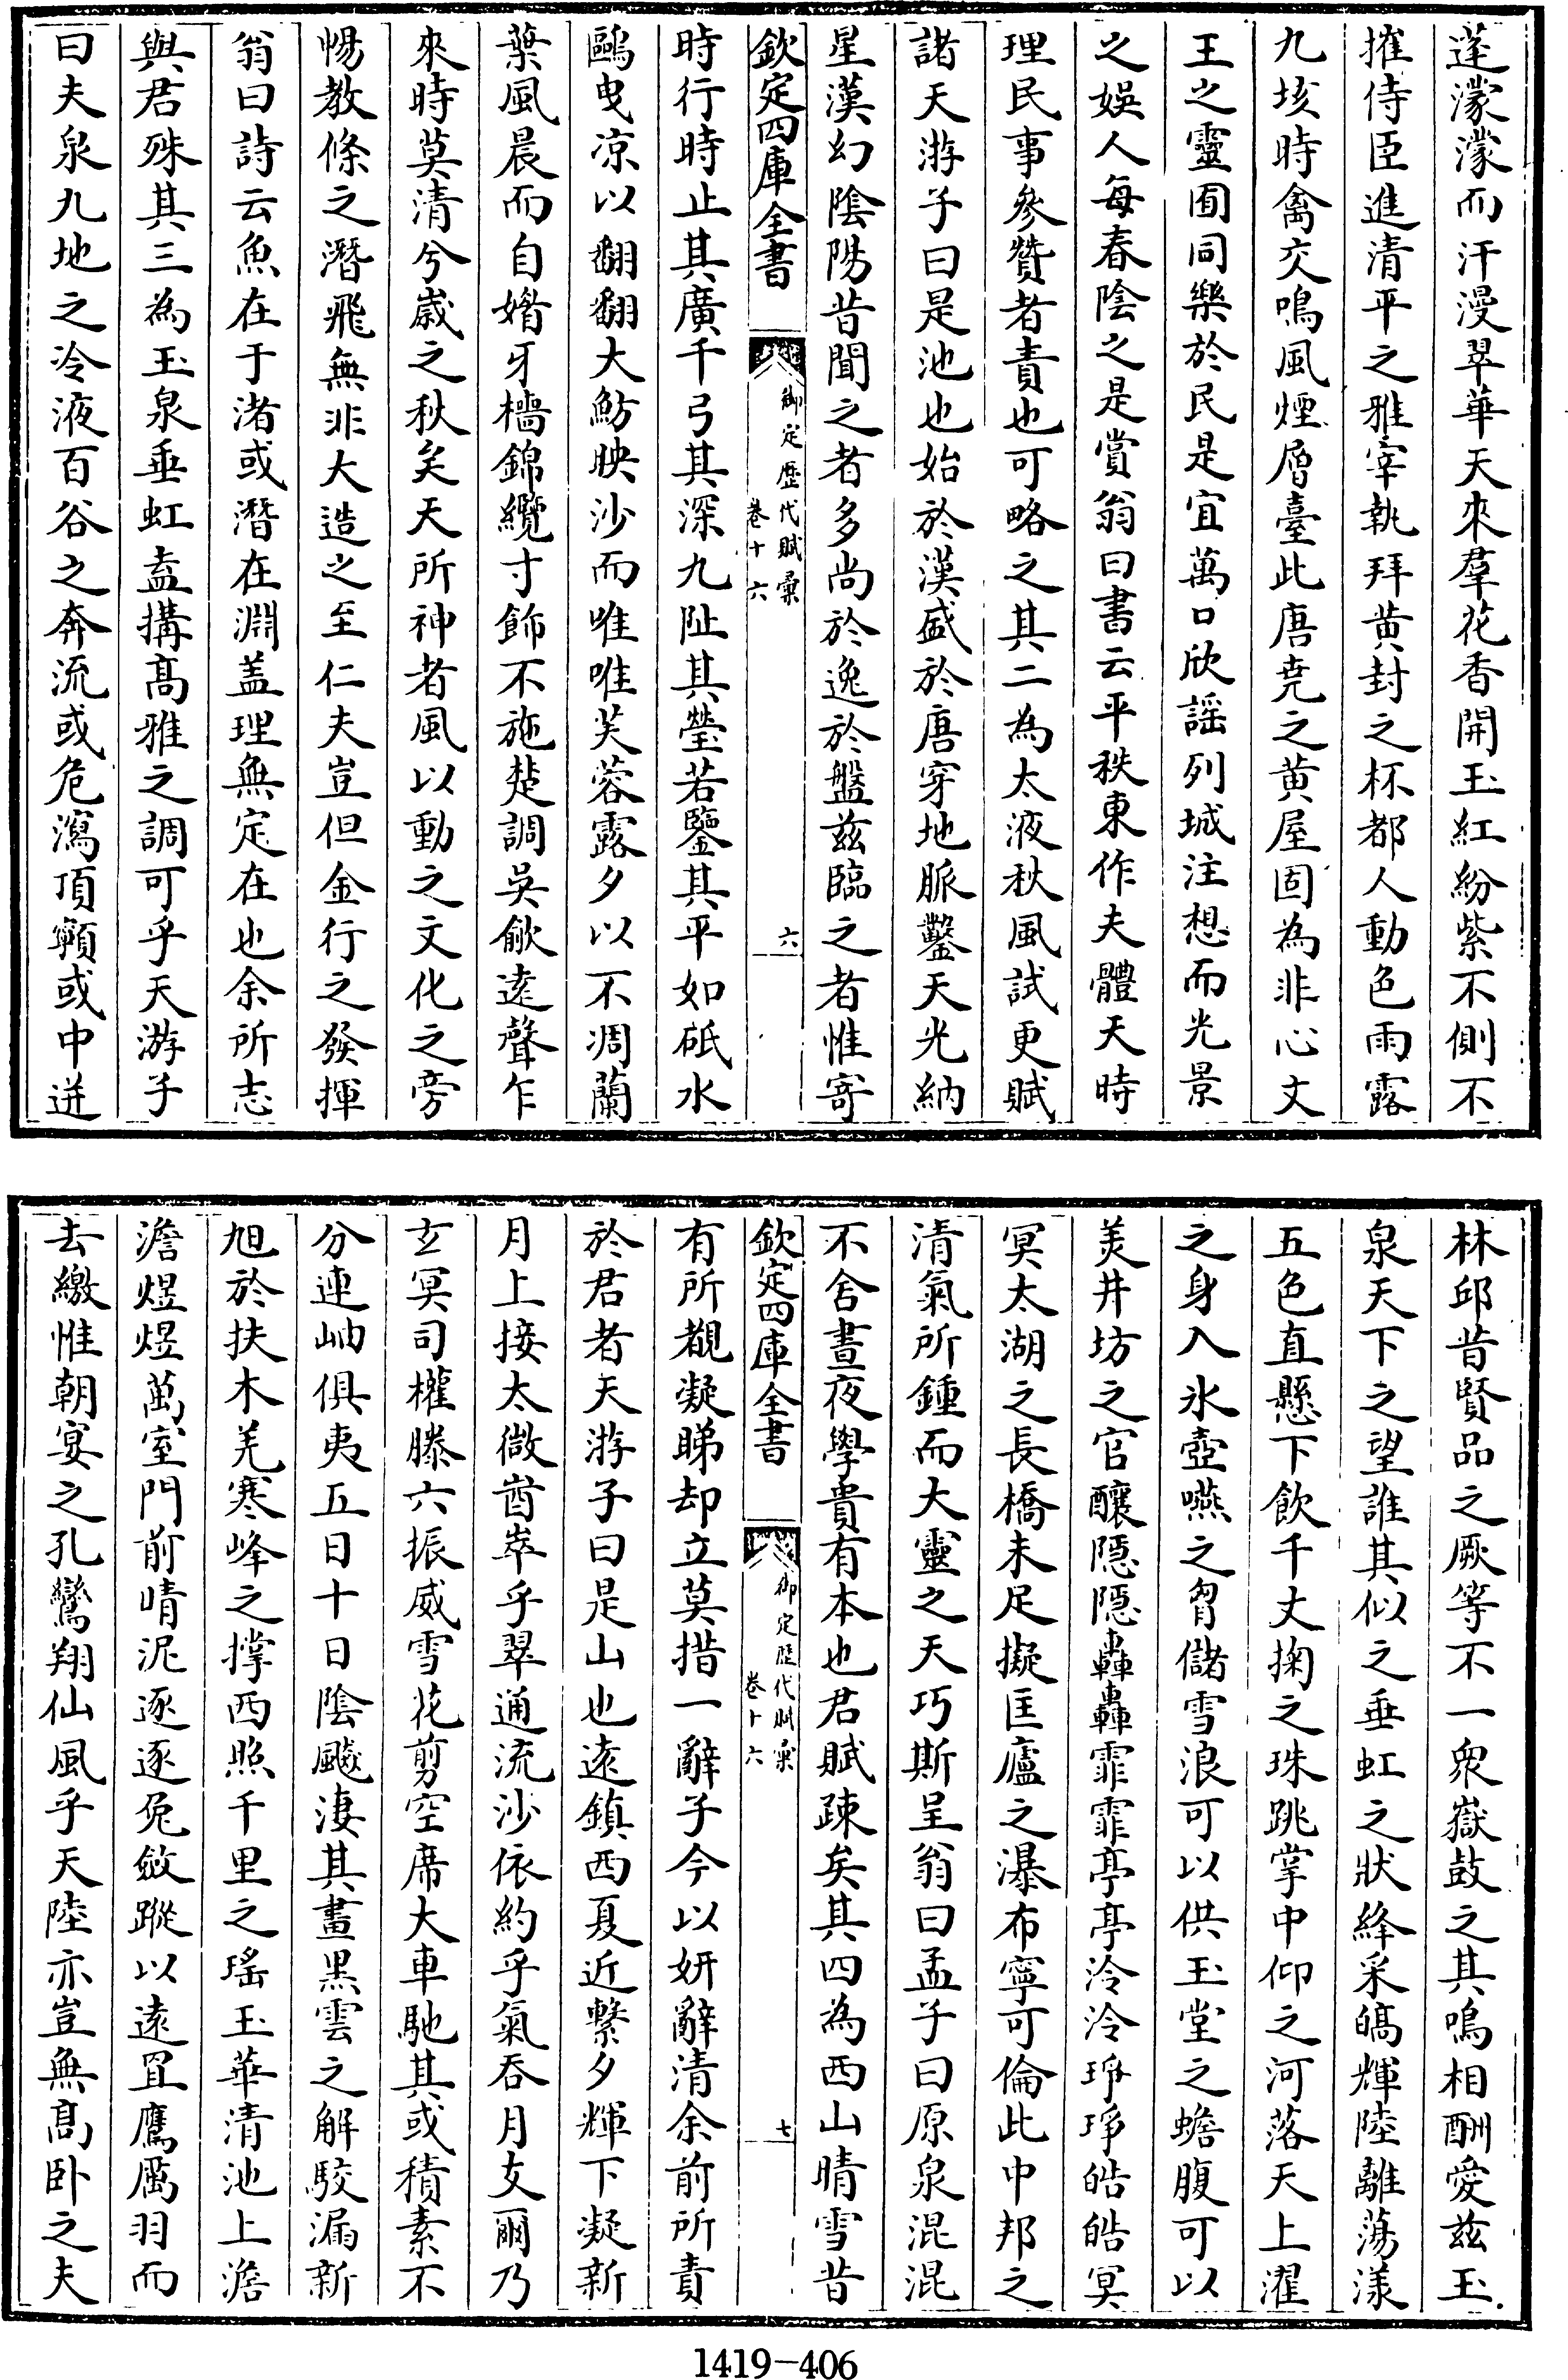 蓬濛濛而汗漫翠華天來羣花香開玉紅紛紫不側不
摧侍臣進清平之雅宰執拜黄封之杯都人動色雨露
九垓時禽交鳴風煙層臺此唐堯之黄屋固為非心文
王之靈囿同樂於民是宜萬口欣謡列城注想而光景
之娛人每春陰之是賞翁曰書云平秩東作夫體天時
理民事參贊者責也可略之其二為太液秋風試更賦
諸天游子曰是池也始於漢盛於唐穿地脈鑿天光納
星漢幻陰陽昔聞之者多尚於逸於盤兹臨之者惟寄
欽定四庫全書
御定歴代賦彙
卷十六
六
時行時止其廣千弓其深九阯其瑩若鑒其平如砥水
鷗曳凉以翻翻大魴映沙而唯唯芙蓉露夕以不凋蘭
葉風晨而自㜗牙檣錦纜寸飾不施楚調吳歈逺聲乍
來時莫清兮歲之秋矣天所神者風以動之文化之旁
惕教條之潛飛無非大造之至仁夫豈但金行之發揮
翁曰詩云魚在于渚或潛在淵蓋理無定在也余所志
與君殊其三為玉泉垂虹盍搆髙雅之調可乎天游子
曰夫泉九地之冷液百谷之奔流或危瀉頂顙或中迸
林邱昔賢品之厥等不一衆嶽鼓之其鳴相酬愛兹玉
泉天下之望誰其似之垂虹之狀絳采皜輝陸離蕩漾
五色直懸下飲千丈掬之珠跳掌中仰之河落天上濯
之身入氷壺嚥之胷儲雪浪可以供玉堂之蟾腹可以
羙井坊之官釀隱隱轟轟霏霏亭亭泠泠琤琤皓皓冥
冥太湖之長橋未足擬匡廬之瀑布寧可倫此中邦之
清氣所鍾而大靈之天巧斯呈翁曰孟子曰原泉混混
不舍晝夜學貴有本也君賦疎矣其四為西山晴雪昔
欽定四庫全書
御定歴代賦彙
卷十六
七
有所覩凝睇却立莫措一辭子今以妍辭清余前所責
於君者天游子曰是山也逺鎮西夏近繫夕輝下凝新
月上接太微酋崒乎翠通流沙依約乎氣吞月支爾乃
玄冥司權滕六振威雪花剪空席大車馳其或積素不
分連岫俱夷五日十日陰飈淒其畫黒雲之解駮漏新
旭於扶木羌寒峰之撑西照千里之瑤玉華清池上澹
澹煜煜萬室門前晴泥逐逐兔斂蹤以逺罝鷹厲羽而
去繳惟朝宴之孔鸞翔仙風乎天陸亦豈無髙卧之夫
1419-406